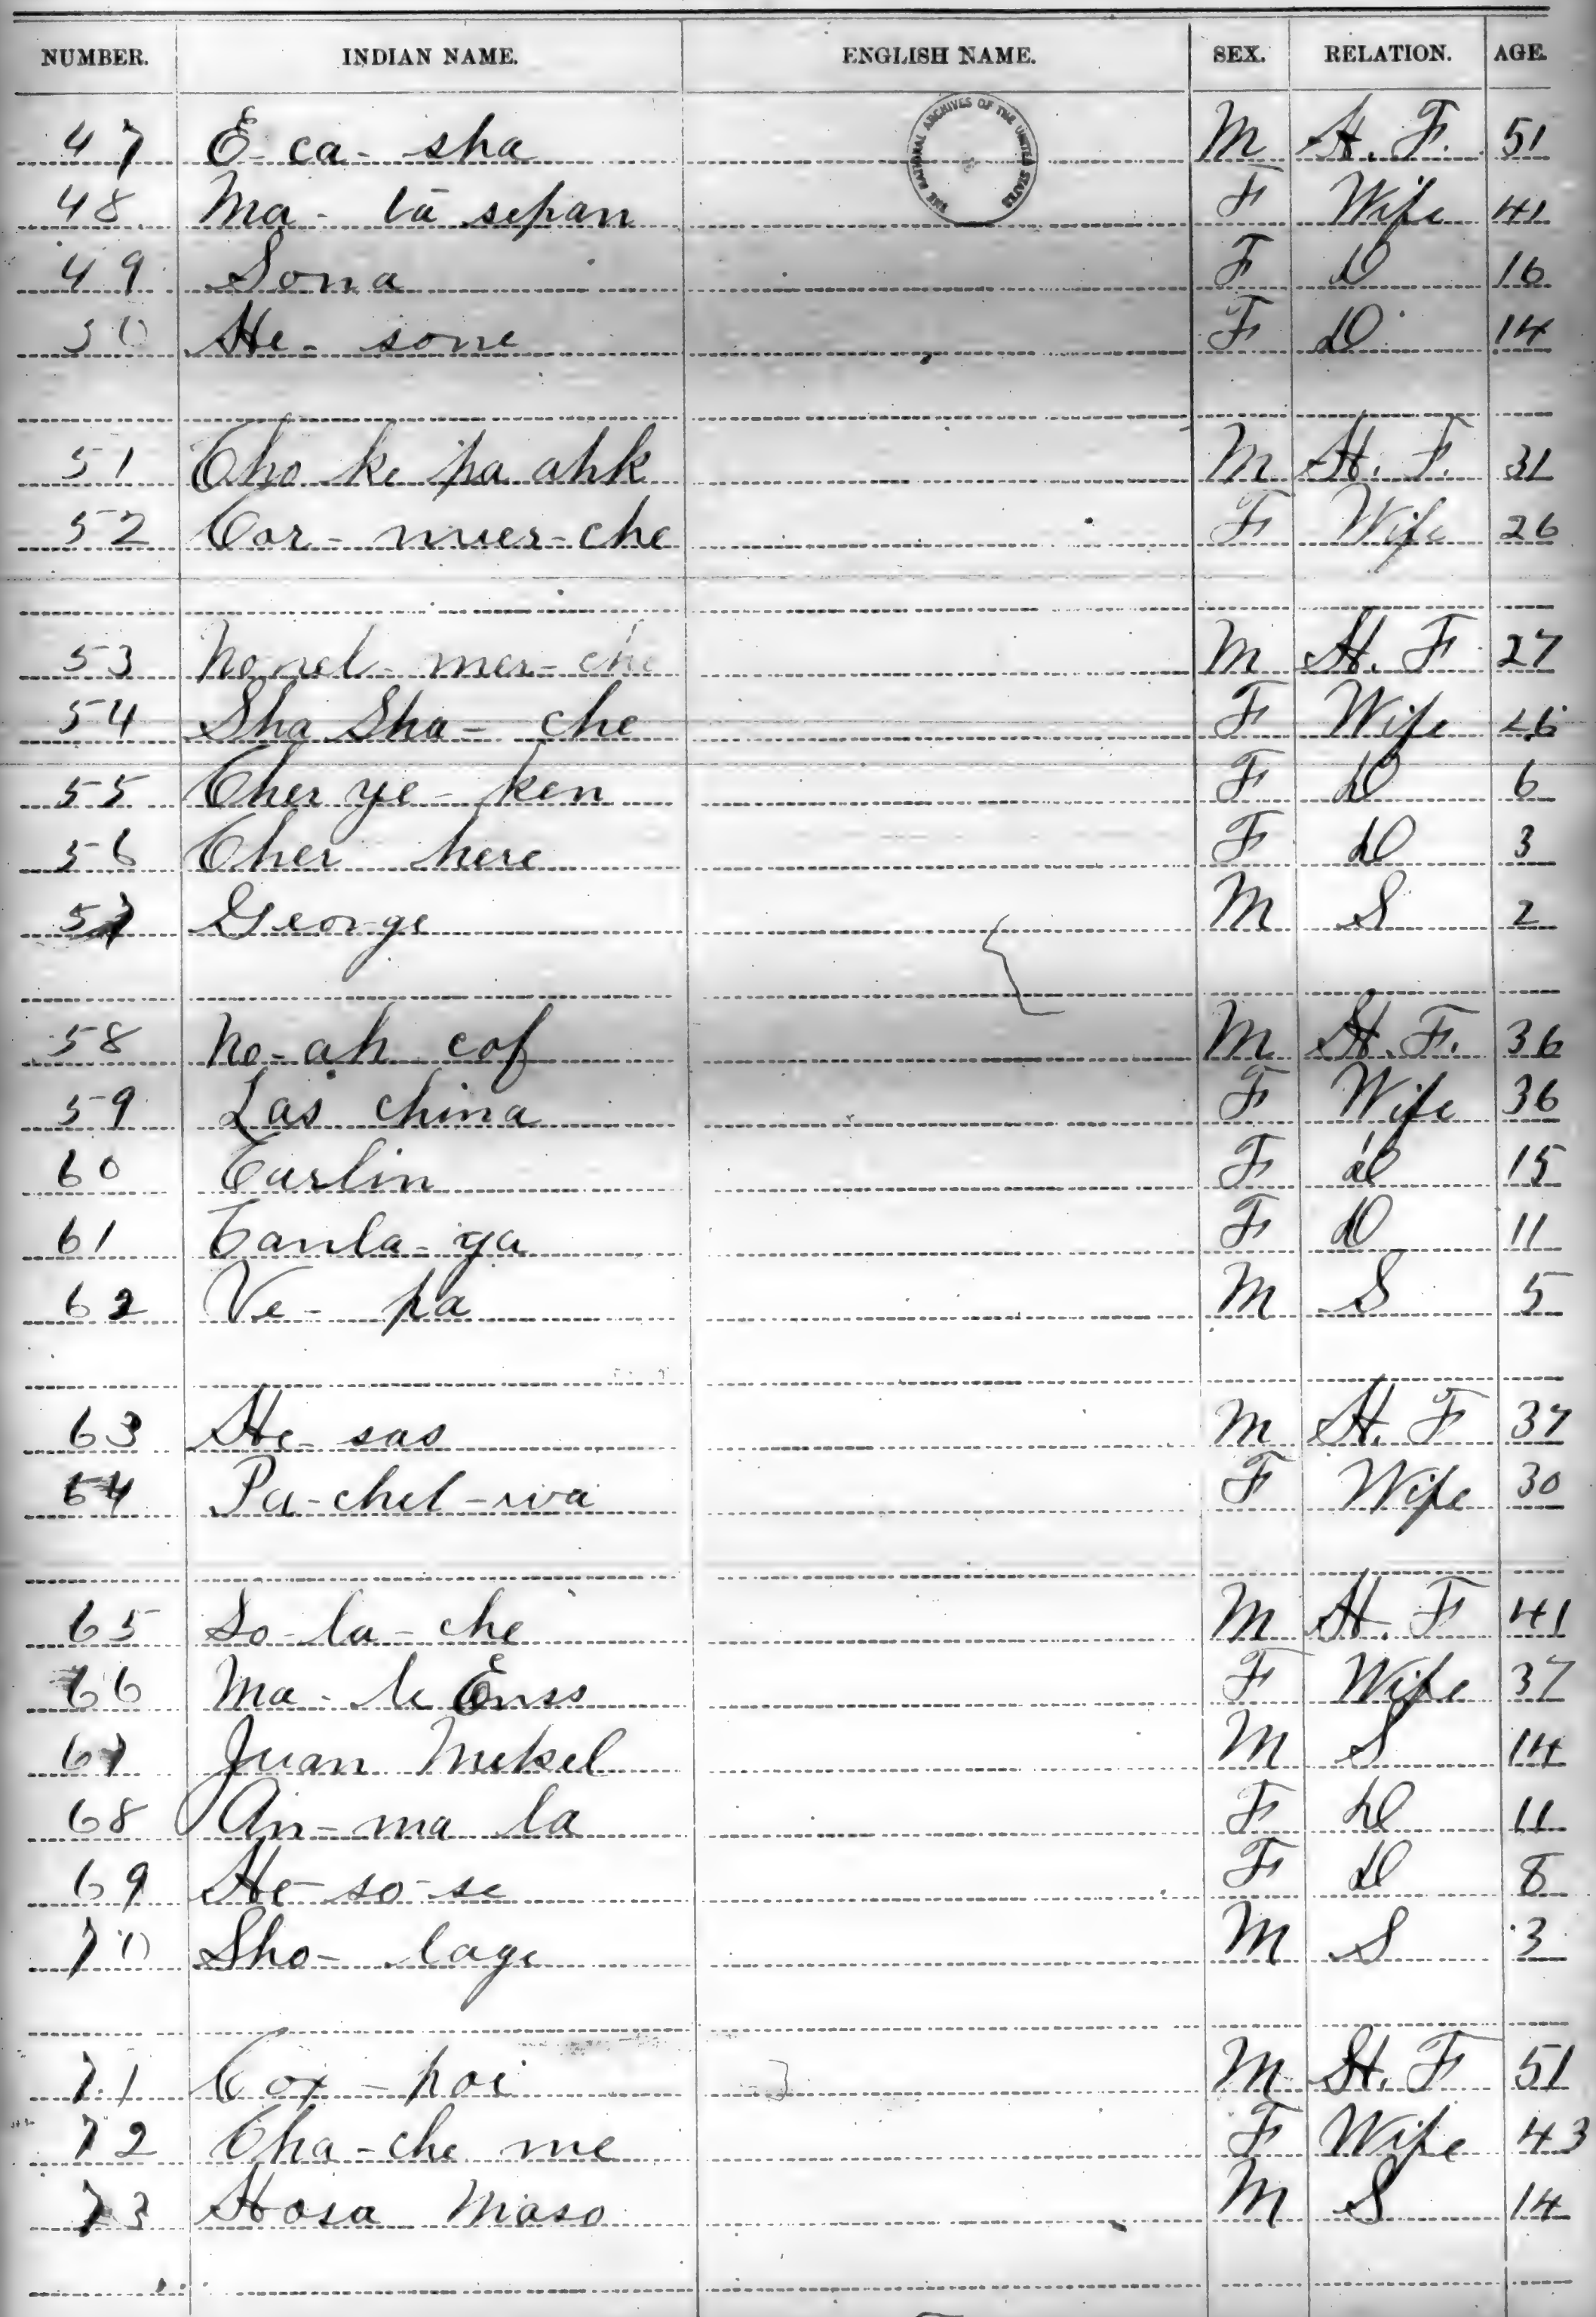 NUMBER. INDIAN NAME. ENGLISH NAME. SEX. RELATION. AGE.
THE NATIONAL ARCHIVES OF THE UNITED STATES
47 E-ca-sha M H. F. 51
48 Ma-la sepan F Wife 41
49 Sona F D 16
50 He-sone F D 14
51 Cho ke pa ahk M H. F. 31
52 Cor-muer-che F Wife 26
53 Nonel-mer-che M H. F 27
54 Sha Sha-che F Wife 26
55 Cher ye-ken F D 6
56 Cher here F D 3
57 George M S 2
58 No-ah cof M H. F. 36
59 Las china F Wife 36
60 Carlin F D 15
61 Canla-ya F D 11
62 Ve-pa M S 5
63 He-sas M H. F 37
64 Pa-chel-wa F Wife 30
65 So-la-che M H. F 41
66 Ma-le Enss F Wife 37
67 Juan Mekel M S 14
68 An-ma la F D 11
69 He-so-se F D 8
70 Sho-lage M S 3
71 Cox-poi M H. F 51
72 Cha-che me F Wife 43
73 Hosa Maso M S 14